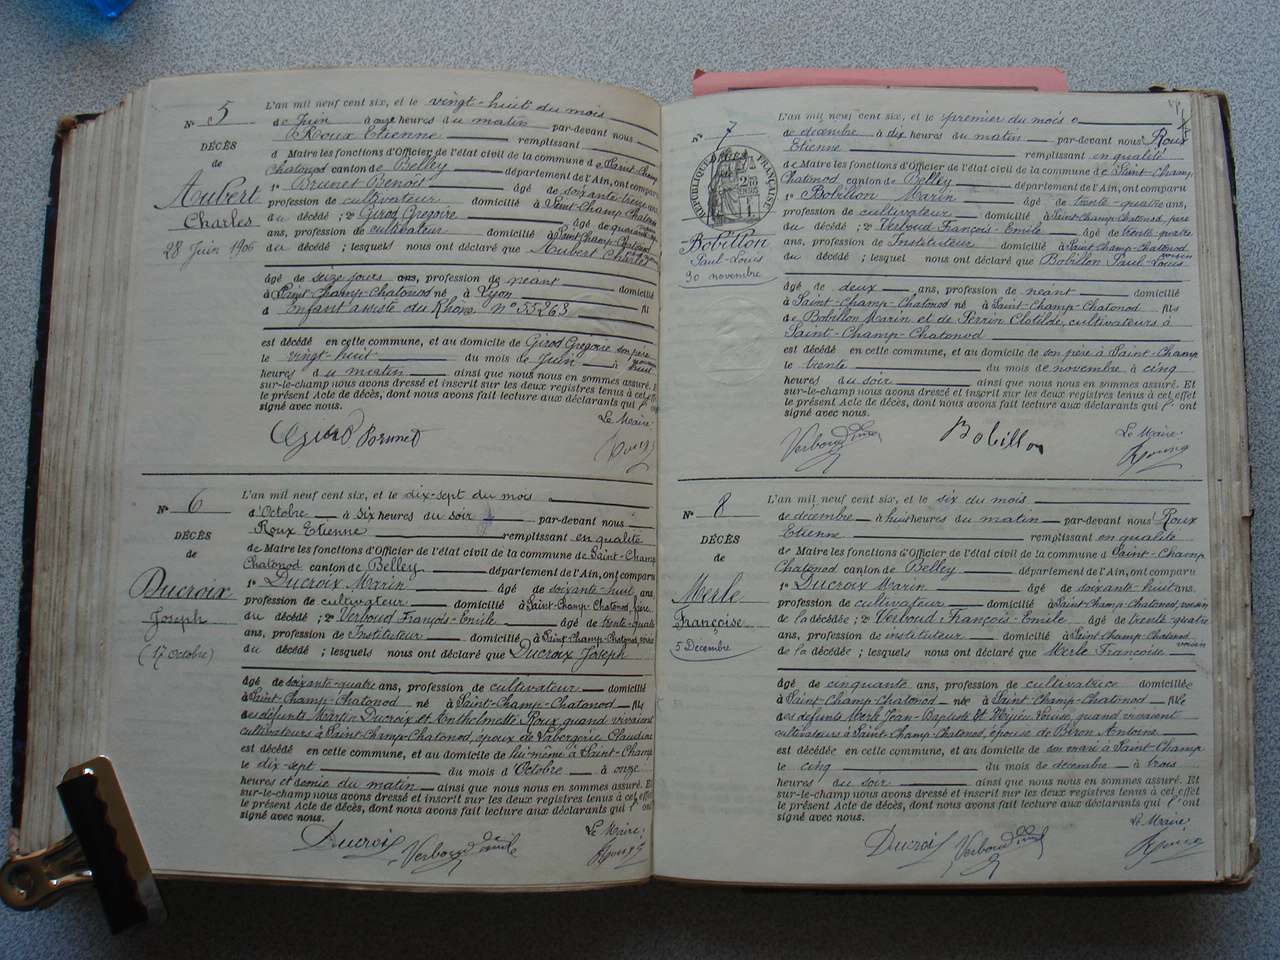 N° 5
DÉCÈS
de
Aubert
Charles
28 Juin 1906
L'an mil neuf cent six, et le vingt-huit du mois
de Juin à onze heures du matin par-devant nous
Roux Etienne remplissant
d Maire les fonctions d'Officier de l'état civil de la commune de Saint-Champ
Chatonod canton de Belley département de l'Ain, ont comparu
1° Brunet Benoit âgé de soixante treize ans
profession de cultivateur domicilié à Saint-Champ-Chatonod
du décédé ; 2° Girod Grégoire âgé de quarante
ans, profession de cultivateur domicilié à Saint-Champ-Chatonod
du décédé ; lesquels nous ont déclaré que Aubert Charles
âgé de seize jours ans, profession de néant domicilié
à Saint-Champ-Chatonod né à Lyon
d Enfant assisté du Rhône N° 55263 fils
est décédé en cette commune, et au domicile de Girod Grégoire son père
le vingt-huit du mois de Juin à huit
heures du matin ainsi que nous nous en sommes assuré. Et
sur-le-champ nous avons dressé et inscrit sur les deux registres tenus à cet effet
le présent Acte de décès, dont nous avons fait lecture aux déclarants qui l'ont
signé avec nous.
Le Maire
Girod Brunet
N° 6
DÉCÈS
de
Ducroix
Joseph
(17 octobre)
L'an mil neuf cent six, et le dix-sept du mois
d'Octobre à six heures du soir par-devant nous
Roux Etienne remplissant en qualité
de Maire les fonctions d'Officier de l'état civil de la commune de Saint-Champ
Chatonod canton de Belley département de l'Ain, ont comparu
1° Ducroix Marin âgé de soixante-huit ans
profession de cultivateur domicilié à Saint-Champ-Chatonod,
du décédé ; 2° Verboud François-Emile âgé de trente-quatre
ans, profession de Instituteur domicilié à Saint-Champ-Chatonod,
du décédé ; lesquels nous ont déclaré que Ducroix Joseph
âgé de soixante-quatre ans, profession de cultivateur domicilié
à Saint-Champ-Chatonod né à Saint-Champ-Chatonod fils
des défunts Martin Ducroix et Anthelmette Roux quand vivaient
cultivateurs à Saint-Champ-Chatonod, époux de Labergerie Claudine
est décédé en cette commune, et au domicile de lui-même à Saint-Champ
le dix-sept du mois d'Octobre à onze
heures et demie du matin ainsi que nous nous en sommes assuré. Et
sur-le-champ nous avons dressé et inscrit sur les deux registres tenus à cet effet
le présent Acte de décès, dont nous avons fait lecture aux déclarants qui l'ont
signé avec nous.
Le Maire
Ducroix Verboud Emile
N° 7
RÉPUBLIQUE FRANÇAISE
Bobillon
Paul-Louis
30 novembre
L'an mil neuf cent six, et le premier du mois
de décembre à dix heures du matin par-devant nous Roux
Etienne remplissant en qualité
de Maire les fonctions d'Officier de l'état civil de la commune de Saint-Champ
Chatonod canton de Belley département de l'Ain, ont comparu
1° Bobillon Marin âgé de trente-quatre ans,
profession de cultivateur domicilié à Saint-Champ-Chatonod, père
du décédé ; 2° Verboud François-Emile âgé de trente-quatre
ans, profession de Instituteur domicilié à Saint-Champ-Chatonod
voisin
du décédé ; lesquels nous ont déclaré que Bobillon Paul-Louis
âgé de deux ans, profession de néant domicilié
à Saint-Champ-Chatonod né à Saint-Champ-Chatonod fils
de Bobillon Marin et de Perrin Clotilde, cultivateurs à
Saint-Champ-Chatonod
est décédé en cette commune, et au domicile de son père à Saint-Champ
le trente du mois de novembre à cinq
heures du soir ainsi que nous nous en sommes assuré. Et
sur-le-champ nous avons dressé et inscrit sur les deux registres tenus à cet effet
le présent Acte de décès, dont nous avons fait lecture aux déclarants qui l'ont
signé avec nous.
Le Maire
Verboud Emile Bobillon
N° 8
DÉCÈS
de
Merle
Françoise
5 Décembre
L'an mil neuf cent six, et le six du mois
de décembre à huit heures du matin par-devant nous Roux
Etienne remplissant en qualité
de Maire les fonctions d'Officier de l'état civil de la commune d Saint-Champ
Chatonod canton de Belley département de l'Ain, ont comparu
1° Ducroix Marin âgé de soixante-huit ans.
profession de cultivateur domicilié à Saint-Champ-Chatonod, voisin
de la décédée ; 2° Verboud François-Emile âgé de trente-quatre
ans, profession de instituteur domicilié à Saint-Champ-Chatonod
voisin
de la décédée ; lesquels nous ont déclaré que Merle Françoise
âgé de cinquante ans, profession de cultivatrice domiciliée
à Saint-Champ-Chatonod née à Saint-Champ-Chatonod fille
des défunts Merle Jean-Baptiste et Louise, quand vivaient
cultivateurs à Saint-Champ-Chatonod, épouse de Biron Antoine
est décédée en cette commune, et au domicile de son mari à Saint-Champ
le cinq du mois de décembre à trois
heures du soir ainsi que nous nous en sommes assuré. Et
sur-le-champ nous avons dressé et inscrit sur les deux registres tenus à cet effet
le présent Acte de décès, dont nous avons fait lecture aux déclarants qui l'ont
signé avec nous.
Le Maire
Ducroix Verboud Emile